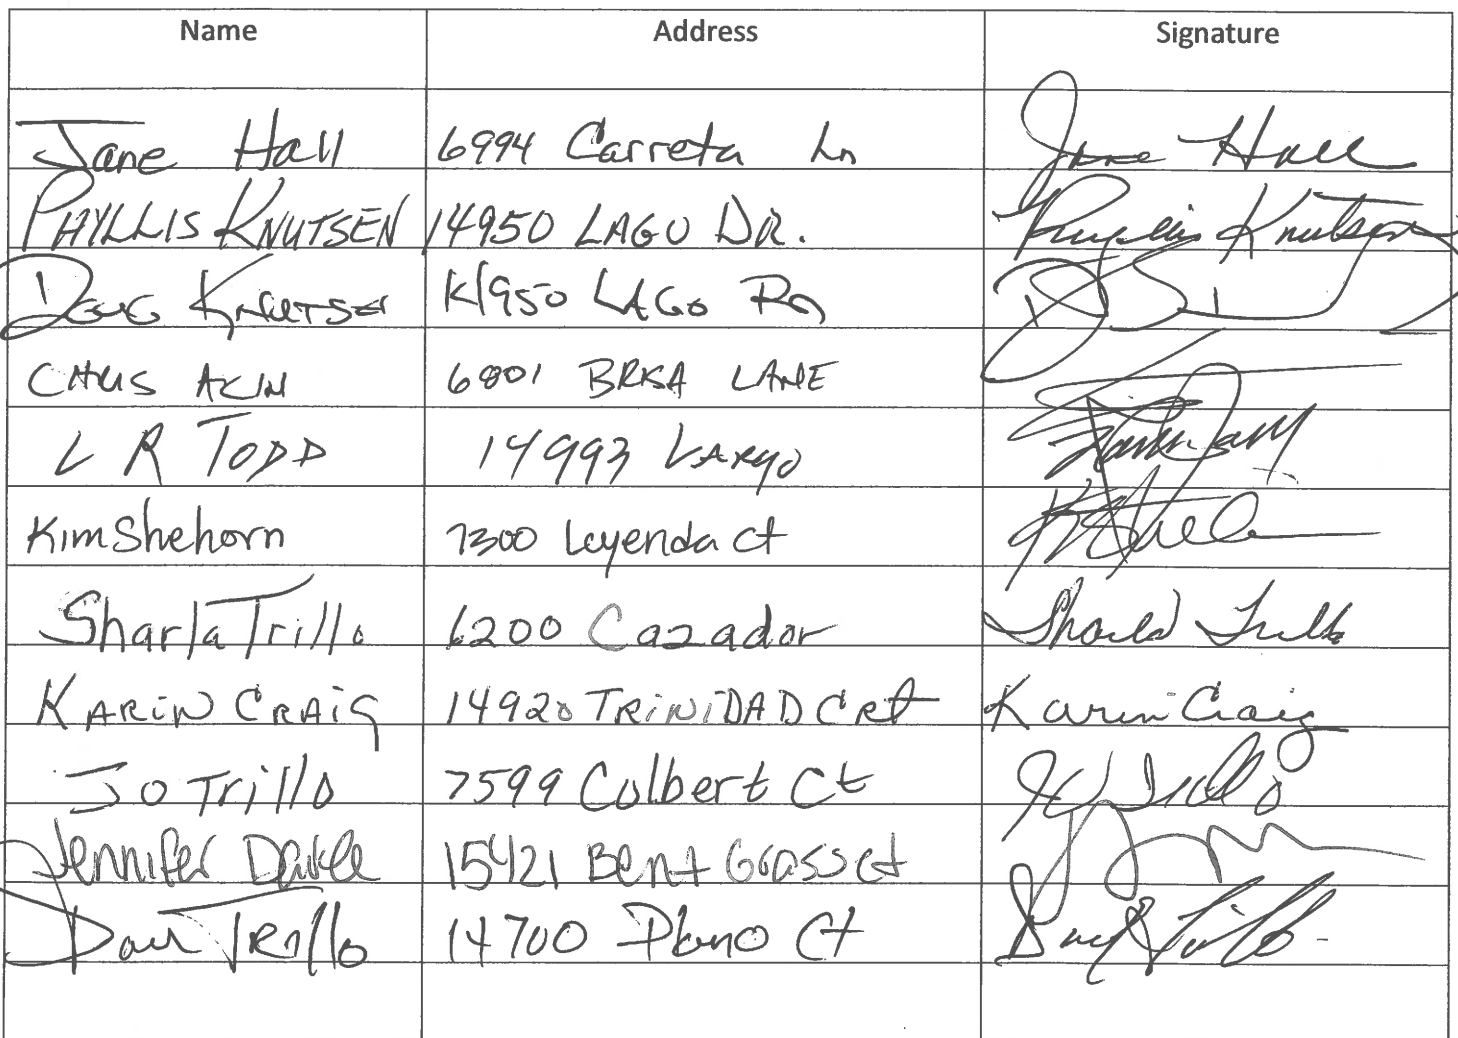 Name Address Signature
Jane Hall 6994 Carreta Ln Jane Hall
PHYLLIS KNUTSEN 14950 LAGO DR. Phyllis Knutsen
DOUG KNUTSEN 14950 LAGO
CHRIS 6801 BRISA LANE
L R TODD 14993 LARGO
Kim Shehorn 7300 Leyenda Ct
Sharla Trillo 6200 Cazador Sharla Trillo
KARIN CRAIG 14920 TRINIDAD CRt Karin Craig
Jo Trillo 7599 Colbert Ct Jo Trillo
Jennifer 15421 Bent Grass Ct
TRillo 14700 Plano Ct